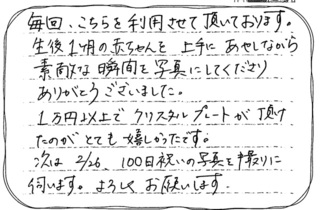 毎回、こちらを利用させて頂いております。
生後1ヶ月の赤ちゃんを上手にあやしながら
素敵な瞬間を写真にしてくださり
ありがとうございました。
1万円以上でクリスタルプレートが頂け
たのがとても嬉しかったです。
次は2/26、100日祝いの写真を撮りに
伺います。よろしくお願いします。